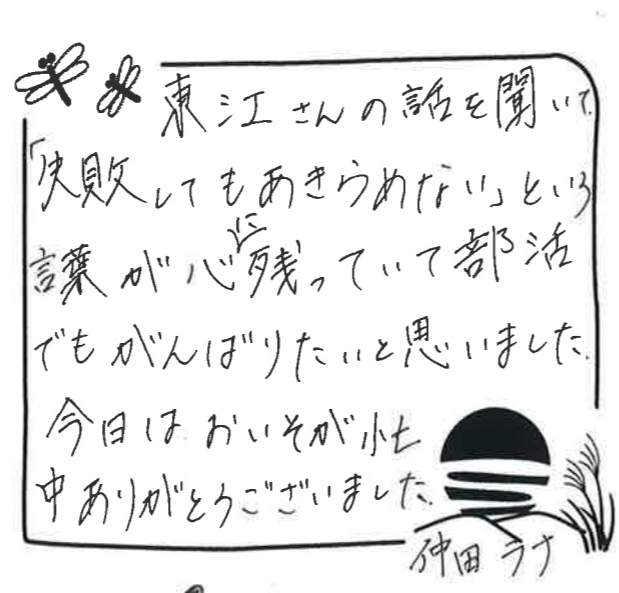 東江さんの話を聞いて、
「失敗してもあきらめない」という
言葉が心に残っていて部活
でもがんばりたいと思いました。
今日はおいそが忙
中ありがとうございました。
仲田 ラナ